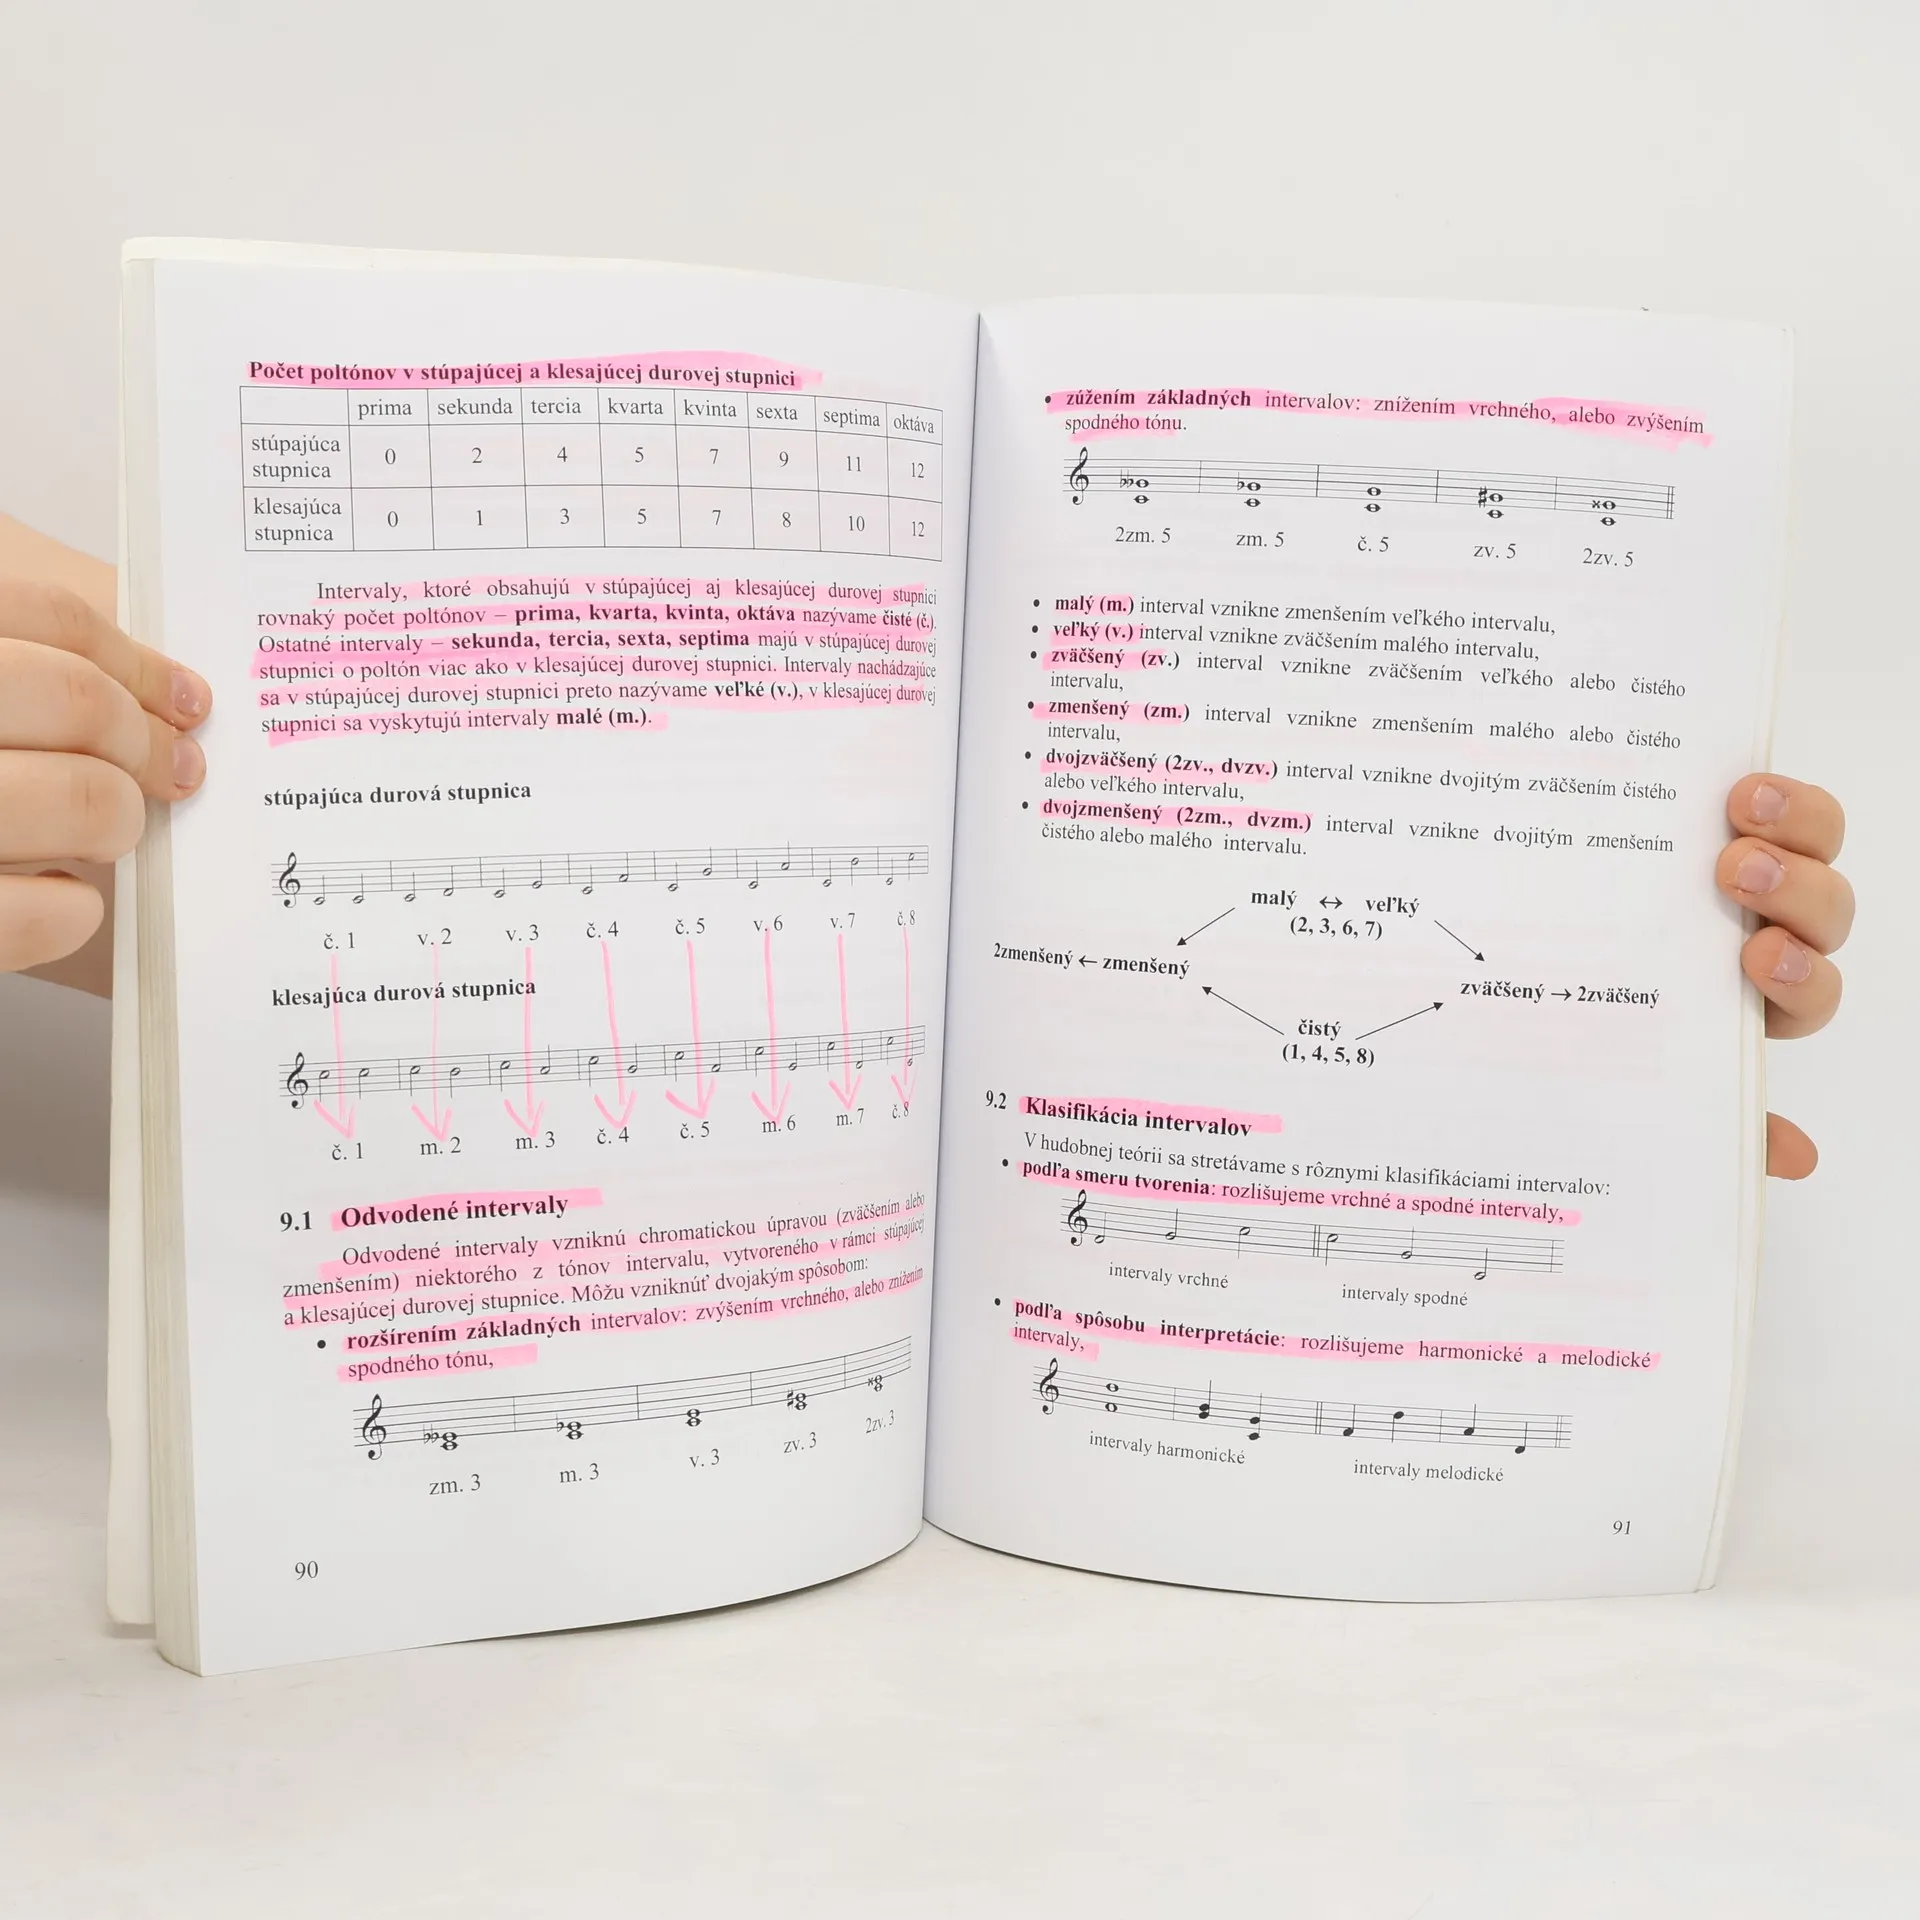 Počet poltónov v stúpajúcej a klesajúcej durovej stupnici
prima sekunda tercia kvarta kvinta sexta septima oktáva
stúpajúca stupnica 0 2 4 5 7 9 11 12
klesajúca stupnica 0 1 3 5 7 8 10 12
Intervaly, ktoré obsahujú v stúpajúcej aj klesajúcej durovej stupnici
rovnaký počet poltónov – prima, kvarta, kvinta, oktáva nazývame čisté (č.).
Ostatné intervaly – sekunda, tercia, sexta, septima majú v stúpajúcej durovej
stupnici o poltón viac ako v klesajúcej durovej stupnici. Intervaly nachádzajúce
sa v stúpajúcej durovej stupnici preto nazývame veľké (v.), v klesajúcej durovej
stupnici sa vyskytujú intervaly malé (m.).
stúpajúca durová stupnica
č. 1 v. 2 v. 3 č. 4 č. 5 v. 6 v. 7 č. 8
klesajúca durová stupnica
č. 1 m. 2 m. 3 č. 4 č. 5 m. 6 m. 7 č. 8
9.1 Odvodené intervaly
Odvodené intervaly vzniknú chromatickou úpravou (zväčšením alebo
zmenšením) niektorého z tónov intervalu, vytvoreného v rámci stúpajúcej
a klesajúcej durovej stupnice. Môžu vzniknúť dvojakým spôsobom:
• rozšírením základných intervalov: zvýšením vrchného, alebo znížením
spodného tónu,
zm. 3 m. 3 v. 3 zv. 3 2zv. 3
90
• zúžením základných intervalov: znížením vrchného, alebo zvýšením
spodného tónu.
2zm. 5 zm. 5 č. 5 zv. 5 2zv. 5
• malý (m.) interval vznikne zmenšením veľkého intervalu,
• veľký (v.) interval vznikne zväčšením malého intervalu,
• zväčšený (zv.) interval vznikne zväčšením veľkého alebo čistého
intervalu,
• zmenšený (zm.) interval vznikne zmenšením malého alebo čistého
intervalu,
• dvojzväčšený (2zv., dvzv.) interval vznikne dvojitým zväčšením čistého
alebo veľkého intervalu,
• dvojzmenšený (2zm., dvzm.) interval vznikne dvojitým zmenšením
čistého alebo malého intervalu.
malý ↔ veľký
(2, 3, 6, 7)
2zmenšený ← zmenšený
zväčšený → 2zväčšený
čistý
(1, 4, 5, 8)
9.2 Klasifikácia intervalov
V hudobnej teórii sa stretávame s rôznymi klasifikáciami intervalov:
• podľa smeru tvorenia: rozlišujeme vrchné a spodné intervaly,
intervaly vrchné intervaly spodné
• podľa spôsobu interpretácie: rozlišujeme harmonické a melodické
intervaly,
intervaly harmonické intervaly melodické
91